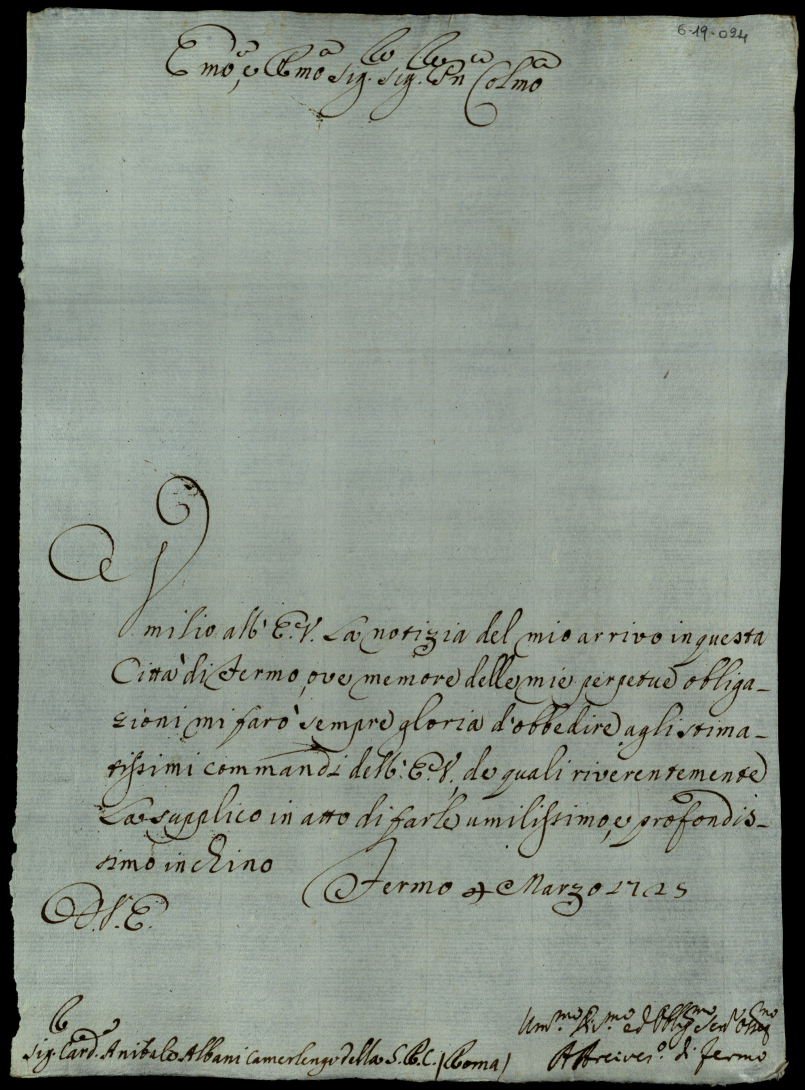 6-19-024
Emo, e Rmo Sig. Sig. Pne Colmo
Umilio all' E.V. la notizia del mio arrivo in questa
Città di Fermo, ove memore delle mie perpetue obliga-
zioni mi farò sempre gloria d'obbedire agli stima-
tissimi commandi dell' E.V., de quali riverentemente
La supplico in atto di farle umilissimo, e profondis-
simo inchino
Fermo 4 Marzo 1725
D.V.E.
Um.mo Di.mo ed Oblig.mo Ser.
Sig. Card. Anibale Albani Camerlengo della S.R.C. (Roma)
Arcives.o di Fermo